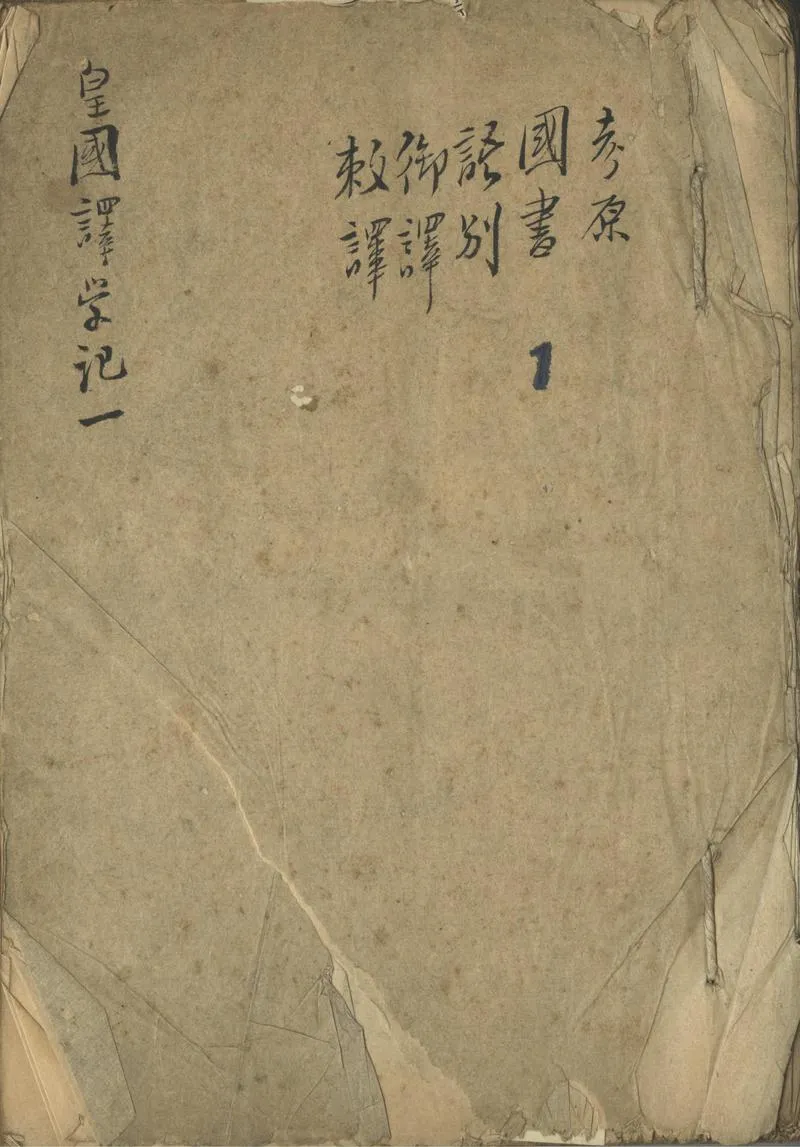 考原
國書
語別
御譯
敕譯
1
皇國譯学記一